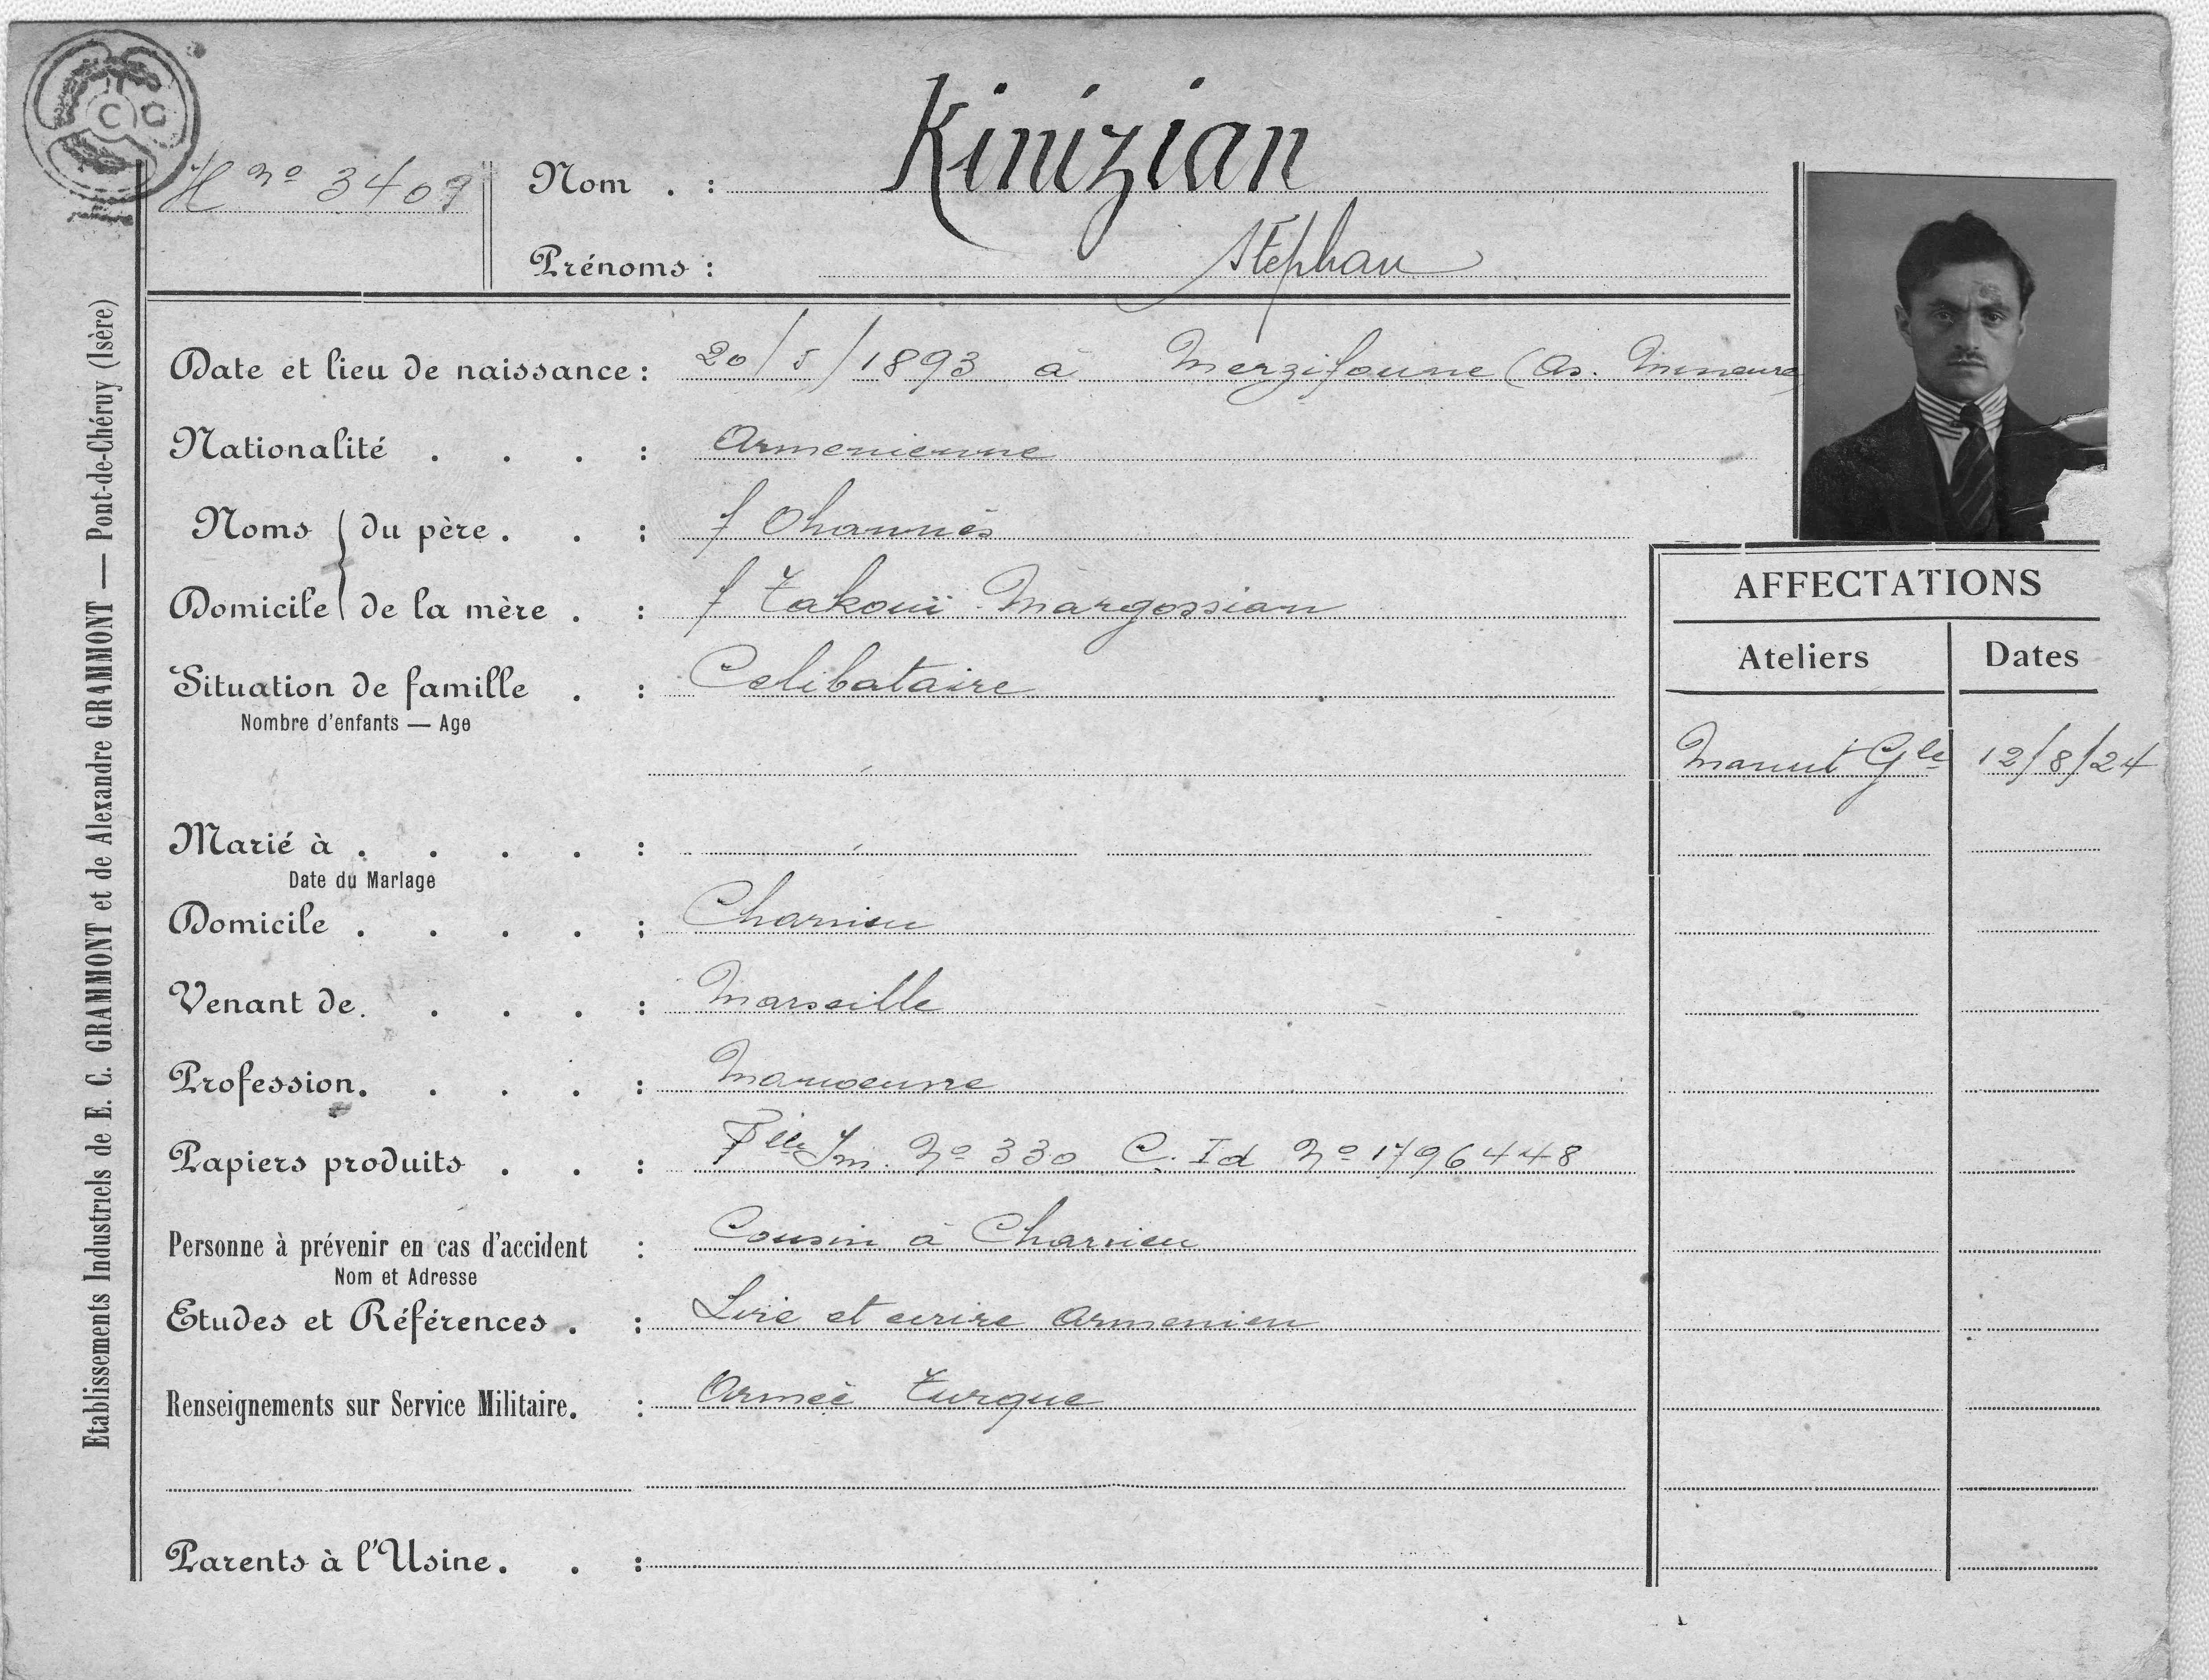 C G
H nº 3409
Nom . : Kinizian
Prénoms : Stéphan
Date et lieu de naissance : 20/5/1893 à Merzifoune (As. Mineure)
Nationalité . . . . : Armenienne
Noms du père . . : f Ohannès
Domicile de la mère . : f Takouï Margossian
Situation de famille . : Celibataire
Nombre d'enfants — Age
Marié à . . . . :
Date du Mariage
Domicile . . . . : Charvieu
Venant de . . . . : Marseille
Profession . . . . : Manoeuvre
Papiers produits . . : Im. Nº 330 C. Id Nº 1796448
Personne à prévenir en cas d'accident : Cousin à Charvieu
Nom et Adresse
Etudes et Références . : Lire et ecrire Armenien
Renseignements sur Service Militaire. : Armeè Turque
Parents à l'Usine . . :
AFFECTATIONS
Ateliers Dates
Manut Gle 12/8/24
Etablissements Industriels de E. C. GRAMMONT et de Alexandre GRAMMONT — Pont-de-Chéruy (Isère)